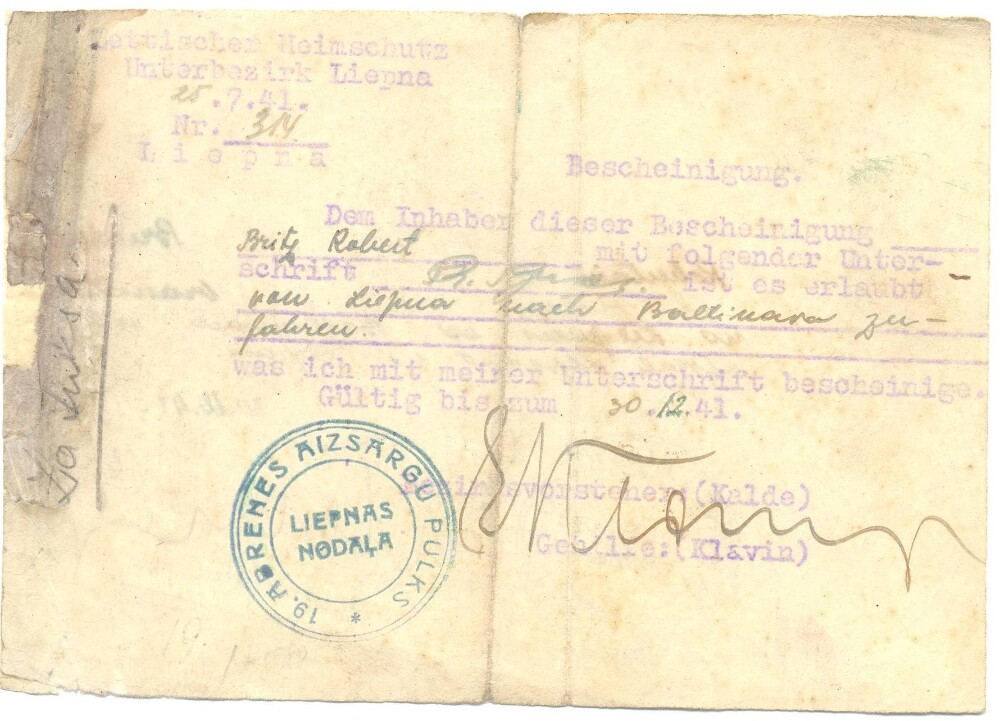 Lettischer Heimschutz
Unterbezirk Liepna
25.7.41.
Nr. 314
Liepna
Bescheinigung.
Dem Inhaber dieser Bescheinigung
Britz Robert mit folgender Unter-
schrift R. ist es erlaubt
von Liepna nach Baltinava zu-
fahren.
was ich mit meiner Unterschrift bescheinige.
Gültig bis zum 30.12.41.
Bezirksvorsteher:(Kalde)
Gehilfe:(Klavin)
19. ABRENES AIZSARGU PULKS *
LIEPNAS
NODAĻA